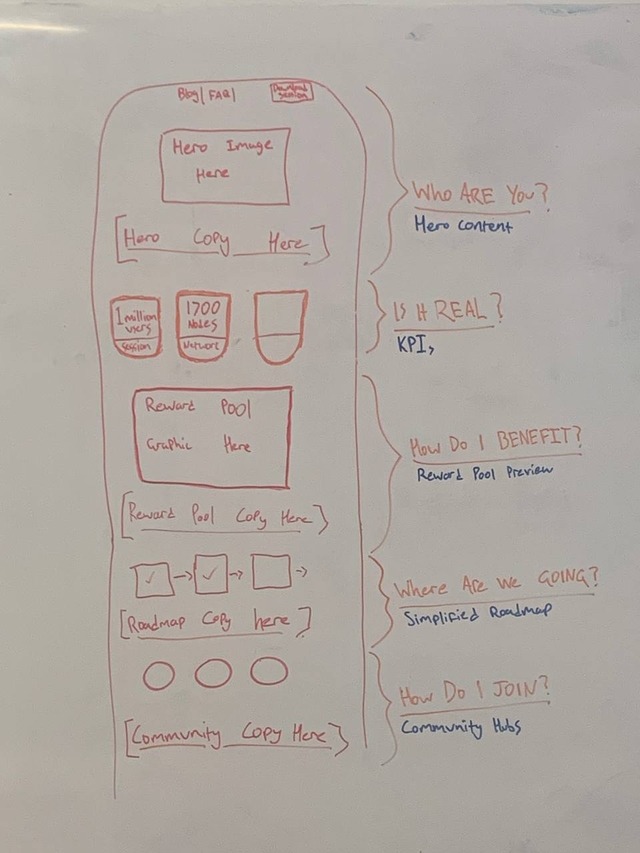 Blog | FAQ |
Download
Session
Hero Image
Here
[Hero Copy Here]
1 million
users
Session
1700
Nodes
Network
Reward Pool
Graphic Here
[Reward Pool Copy Here]
[Roadmap Copy here]
[Community Copy Here]
WHO ARE YOU?
Hero Content
IS it REAL?
KPI,
HOW DO I BENEFIT?
Reward Pool Preview
WHERE ARE WE GOING?
Simplified Roadmap
HOW DO I JOIN?
Community Hubs